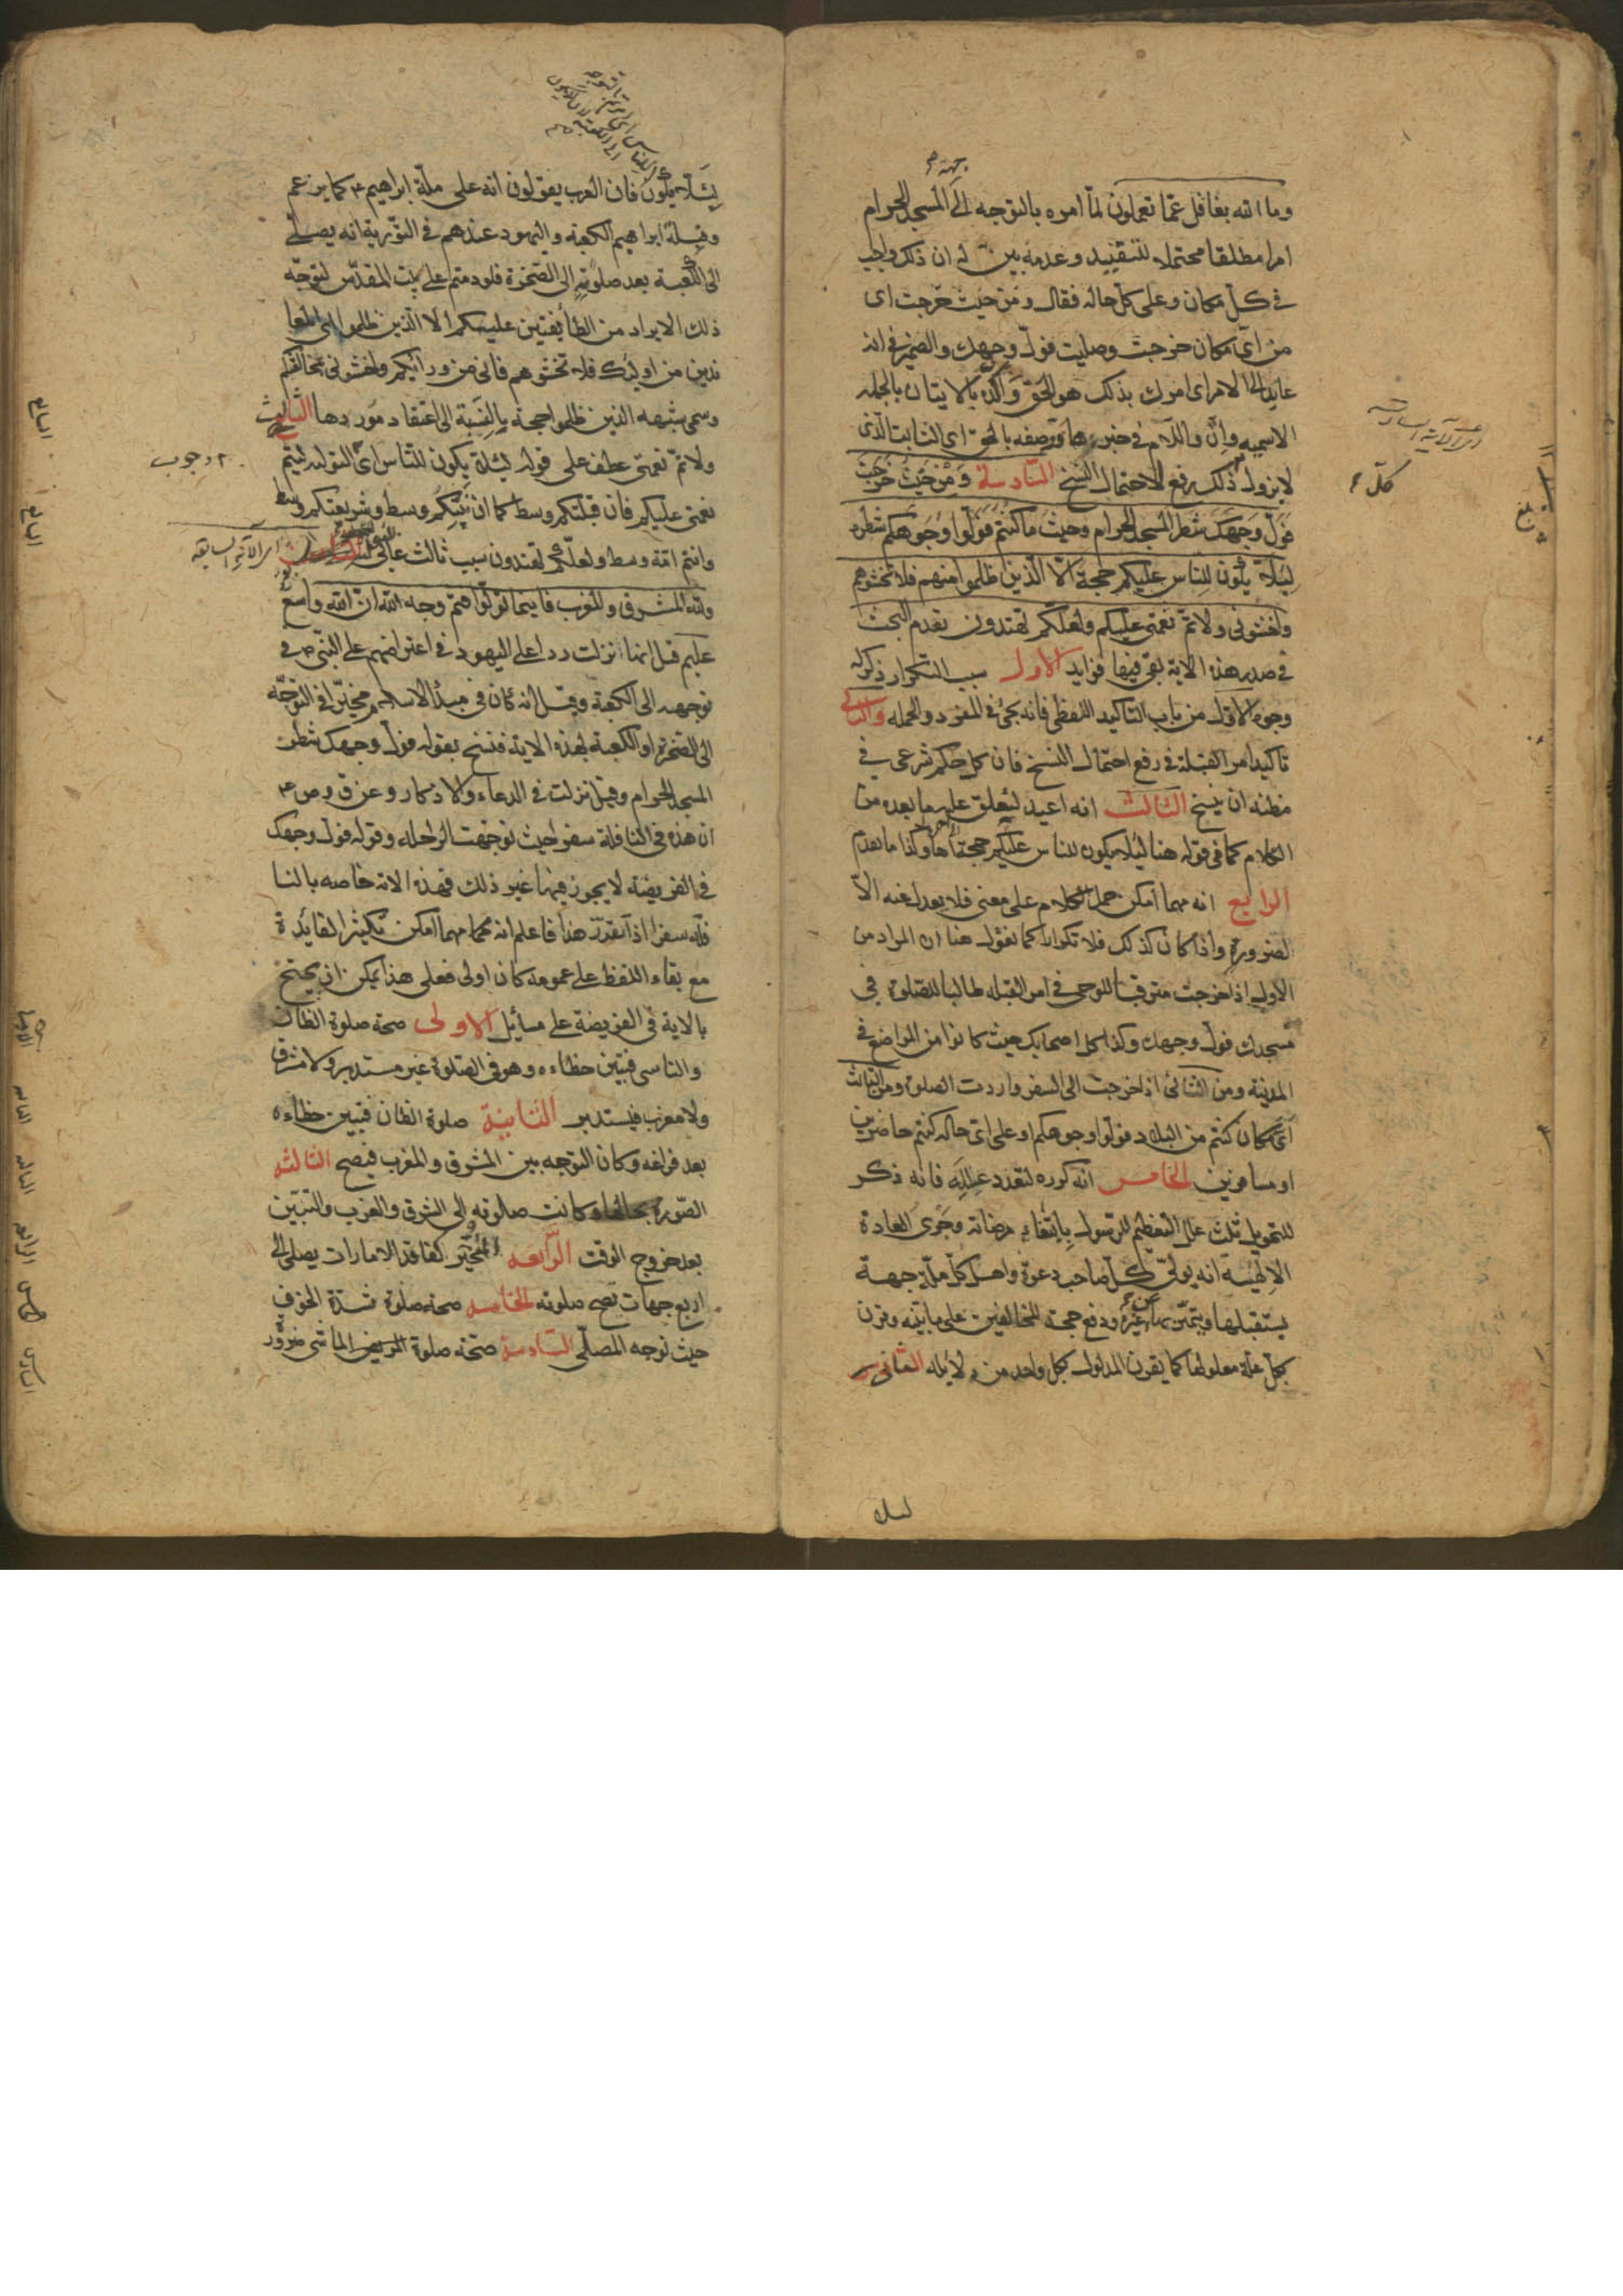 جهة
وما الله بغافل عما تعملون لما امره بالتوجه الى المسجد الحرام
امرا مطلقا محتملا للتقييد وعدمه بين له ان ذلك واجب
في كل مكان وعلى كل حال فقال ومن حيث خرجت اى
من اى مكان خرجت وصليت فول وجهك والضمير في انه
عايد الى الامر اى امرك بذلك هو للحق واكده بالاتيان بالجمله
الاسميه وان واللام في خبرها ووصفه بالحق اى الثابت الذى
لا يزول كل ذلك رفع لاحتمال النسخ السادسة ومن حيث خرجت
فول وجهك شطر المسجد الحرام وحيث ما كنتم فولوا وجوهكم شطره
لئلا يكون للناس عليكم حجة الا الذين ظلموا منهم فلا تخشوهم
واخشونى ولاتم نعمتى عليكم ولعلكم تهتدون تقدم البحث
في صدر هذه الاية بقى فيها فوايد الاول سبب التكرار ذكر له
وجوه الاول من باب التاكيد اللفظى فانه يجئ في المفرد والجمله والثانى
تاكيد امر القبلة في رفع احتمال النسخ فان كل حكم شرعى في
مظنه ان ينسخ الثالث انه اعيد ليعلق عليه ما بعده من
الكلام كما في قوله هنا لئلا يكون للناس عليكم حجة وكذا ما تقدم
الرابع انه مهما امكن حمل الكلام على معنى فلا يعدل عنه الا
لضرورة واذا كان كذلك فلا تكرار كما نقول هنا ان المراد من
الاول اذا خرجت مترقبا للوحى في امر القبله طالبا للصلوة في
مسجدك فول وجهك وكذا كل اصحابك حيث كانوا من المواضع في
المدينة ومن الثانى اذا خرجت الى السفر واردت الصلوة ومن الثالث
اى مكان كنتم من البلاد فولوا وجوهكم او على اى حال كنتم حاضرين
او مسافرين الخامس انه كرره لتعدد علله فانه ذكر
للتحويل ثلث علل التعظيم للرسول بابتغاء مرضاته وجرى العادة
الالهية انه يولى كل صاحب دعوة واهل كل ملة جهة
يستقبلها ويتميز بها عن غيره ودفع حجة للمخالفين على ما نبينه وقرن
بكل علة معلولها كما يقرن المدلول بكل واحد من دلايله الثانى
لئلا
لئلا يكون فان العرب يقولون انه على ملة ابراهيم ع كما يزعم
وقبلة ابراهيم الكعبة واليهود عندهم في التورية انه يصلى
الى الكعبة بعد صلوته الى الصخرة فلو دمتم على بيت المقدس لتوجه
ذلك الايراد من الطائفتين عليكم الا الذين ظلموا اى المعا
ندين من اولئك فلا تخشوهم فانى من ورائكم واخشونى بمخالفتكم
وسمى شبهه الذين ظلموا حجة بالنسبة الى اعتقاد موردها الثالث
ولاتم نعمتى عطف على قوله لئلا يكون للناس اى التوليه ليتم
نعمتى عليكم فان قبلتكم وسط كما ان نبيكم وسط وشريعتكم وسط
وانتم امة وسط ولعلكم تهتدون سبب ثالث
ولله المشرق والمغرب فاينما تولوا فثم وجه الله ان الله واسع
عليم قيل انها نزلت ردا على اليهود في اعتراضهم على النبى ص في
توجهه الى الكعبة وقيل انه كان في مبدأ الاسلام مخيرا في التوجه
الى الصخرة او الكعبة بهذه الاية فنسخ بقوله فول وجهك شطر
المسجد الحرام وقيل نزلت في الدعاء والاذكار وعن ق وص ع
ان هذه في النافلة سفرا حيث توجهت الراحلة وقوله فول وجهك
في الفريضة لا يجوز فيها غير ذلك فهذه الاية خاصه بالنا
فلة سفرا اذا تقرر هذا فاعلم انه مهما امكن تكثير الفائدة
مع بقاء اللفظ على عمومه كان اولى فعلى هذا يمكن ان يحتج
بالاية في الفريضة على مسائل الاولى صحة صلوة الظان
والناسى فتبين خطاءه وهو في الصلوة غير مستدبر ولا مشرق
ولا مغرب فيستدير الثانية صلوة الظان فتبين خطاءه
بعد فراغه وكان التوجه بين المشرق والمغرب فيصح الثالثه
الصورة بحالها وكانت صلوته الى الشرق والغرب والتبين
بعد خروج الوقت الرابعه المتحير لفاقد الامارات يصلى الى
اربع جهات تصح صلوته الخامسه صحة صلوة شدة الخوف
حيث توجه المصلى السادسة صحة صلوة المريض الماشى ضرورة